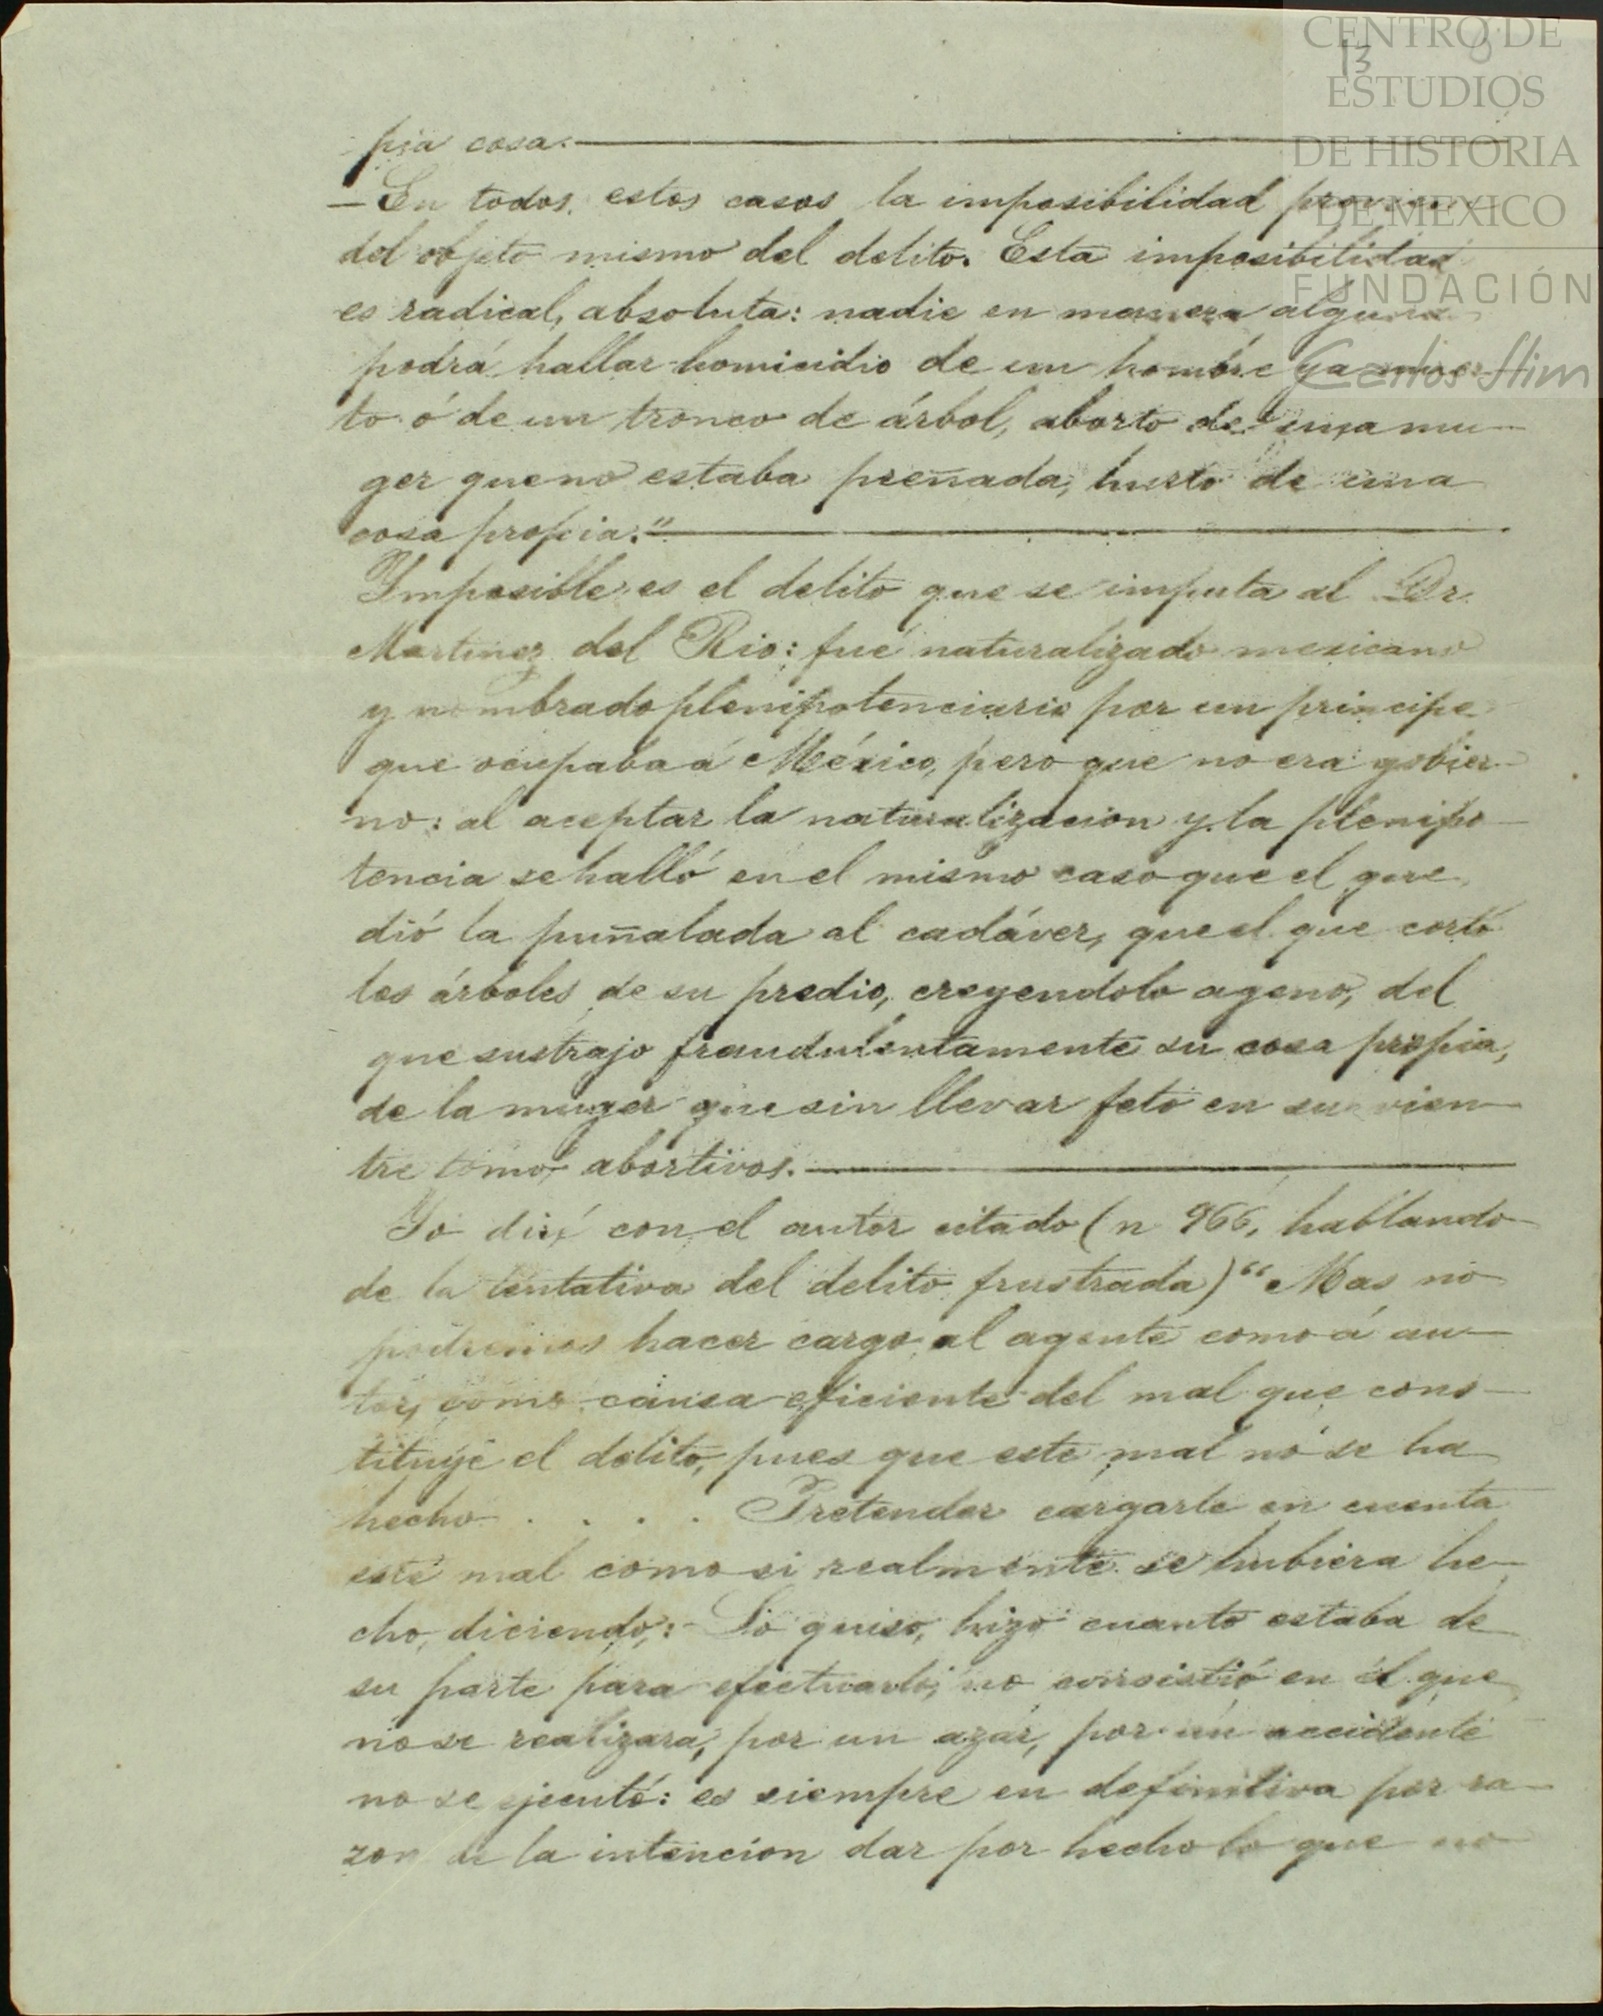 13
CENTRO DE
ESTUDIOS
DE HISTORIA
DE MEXICO
FUNDACIÓN
Carlos Slim
pia cosa.
—En todos estos casos la imposibilidad provien
del objeto mismo del delito. Esta imposibilidad
es radical, absoluta: nadie en manera alguna
podrá hallar homicidio de un hombre ya muer-
to ó de un tronco de árbol, aborto de una mu-
ger que no estaba preñada, hurto de una
cosa propia."
Imposible es el delito que se imputa al Dr.
Martinez del Rio: fué naturalizado mexicano
y nombrado plenipotenciario por un principe
que ocupaba á México, pero que no era gobier-
no: al aceptar la naturalizacion y la plenipo-
tencia se halló en el mismo caso que el que
dió la puñalada al cadáver, que el que cortó
los árboles de su predio, creyendolo ageno, del
que sustrajo fraudulentamente su cosa propia,
de la muger que sin llevar feto en su vien-
tre tomó abortivos.
Yo diré con el autor citado (n 966, hablando
de la tentativa del delito frustrada) "Mas no
podremos hacer cargo al agente como á au-
tor, como causa eficiente del mal que cons-
tituye el delito, pues que este mal no se ha
hecho . . . . Pretender cargarle en cuenta
este mal como si realmente se hubiera he-
cho, diciendo: Lo quiso, hizo cuanto estaba de
su parte para efectuarlo; no consistió en él que
no se realizara, por un azar, por un accidente
no se ejecutó: es siempre en definitiva por ra-
zon de la intencion dar por hecho lo que no